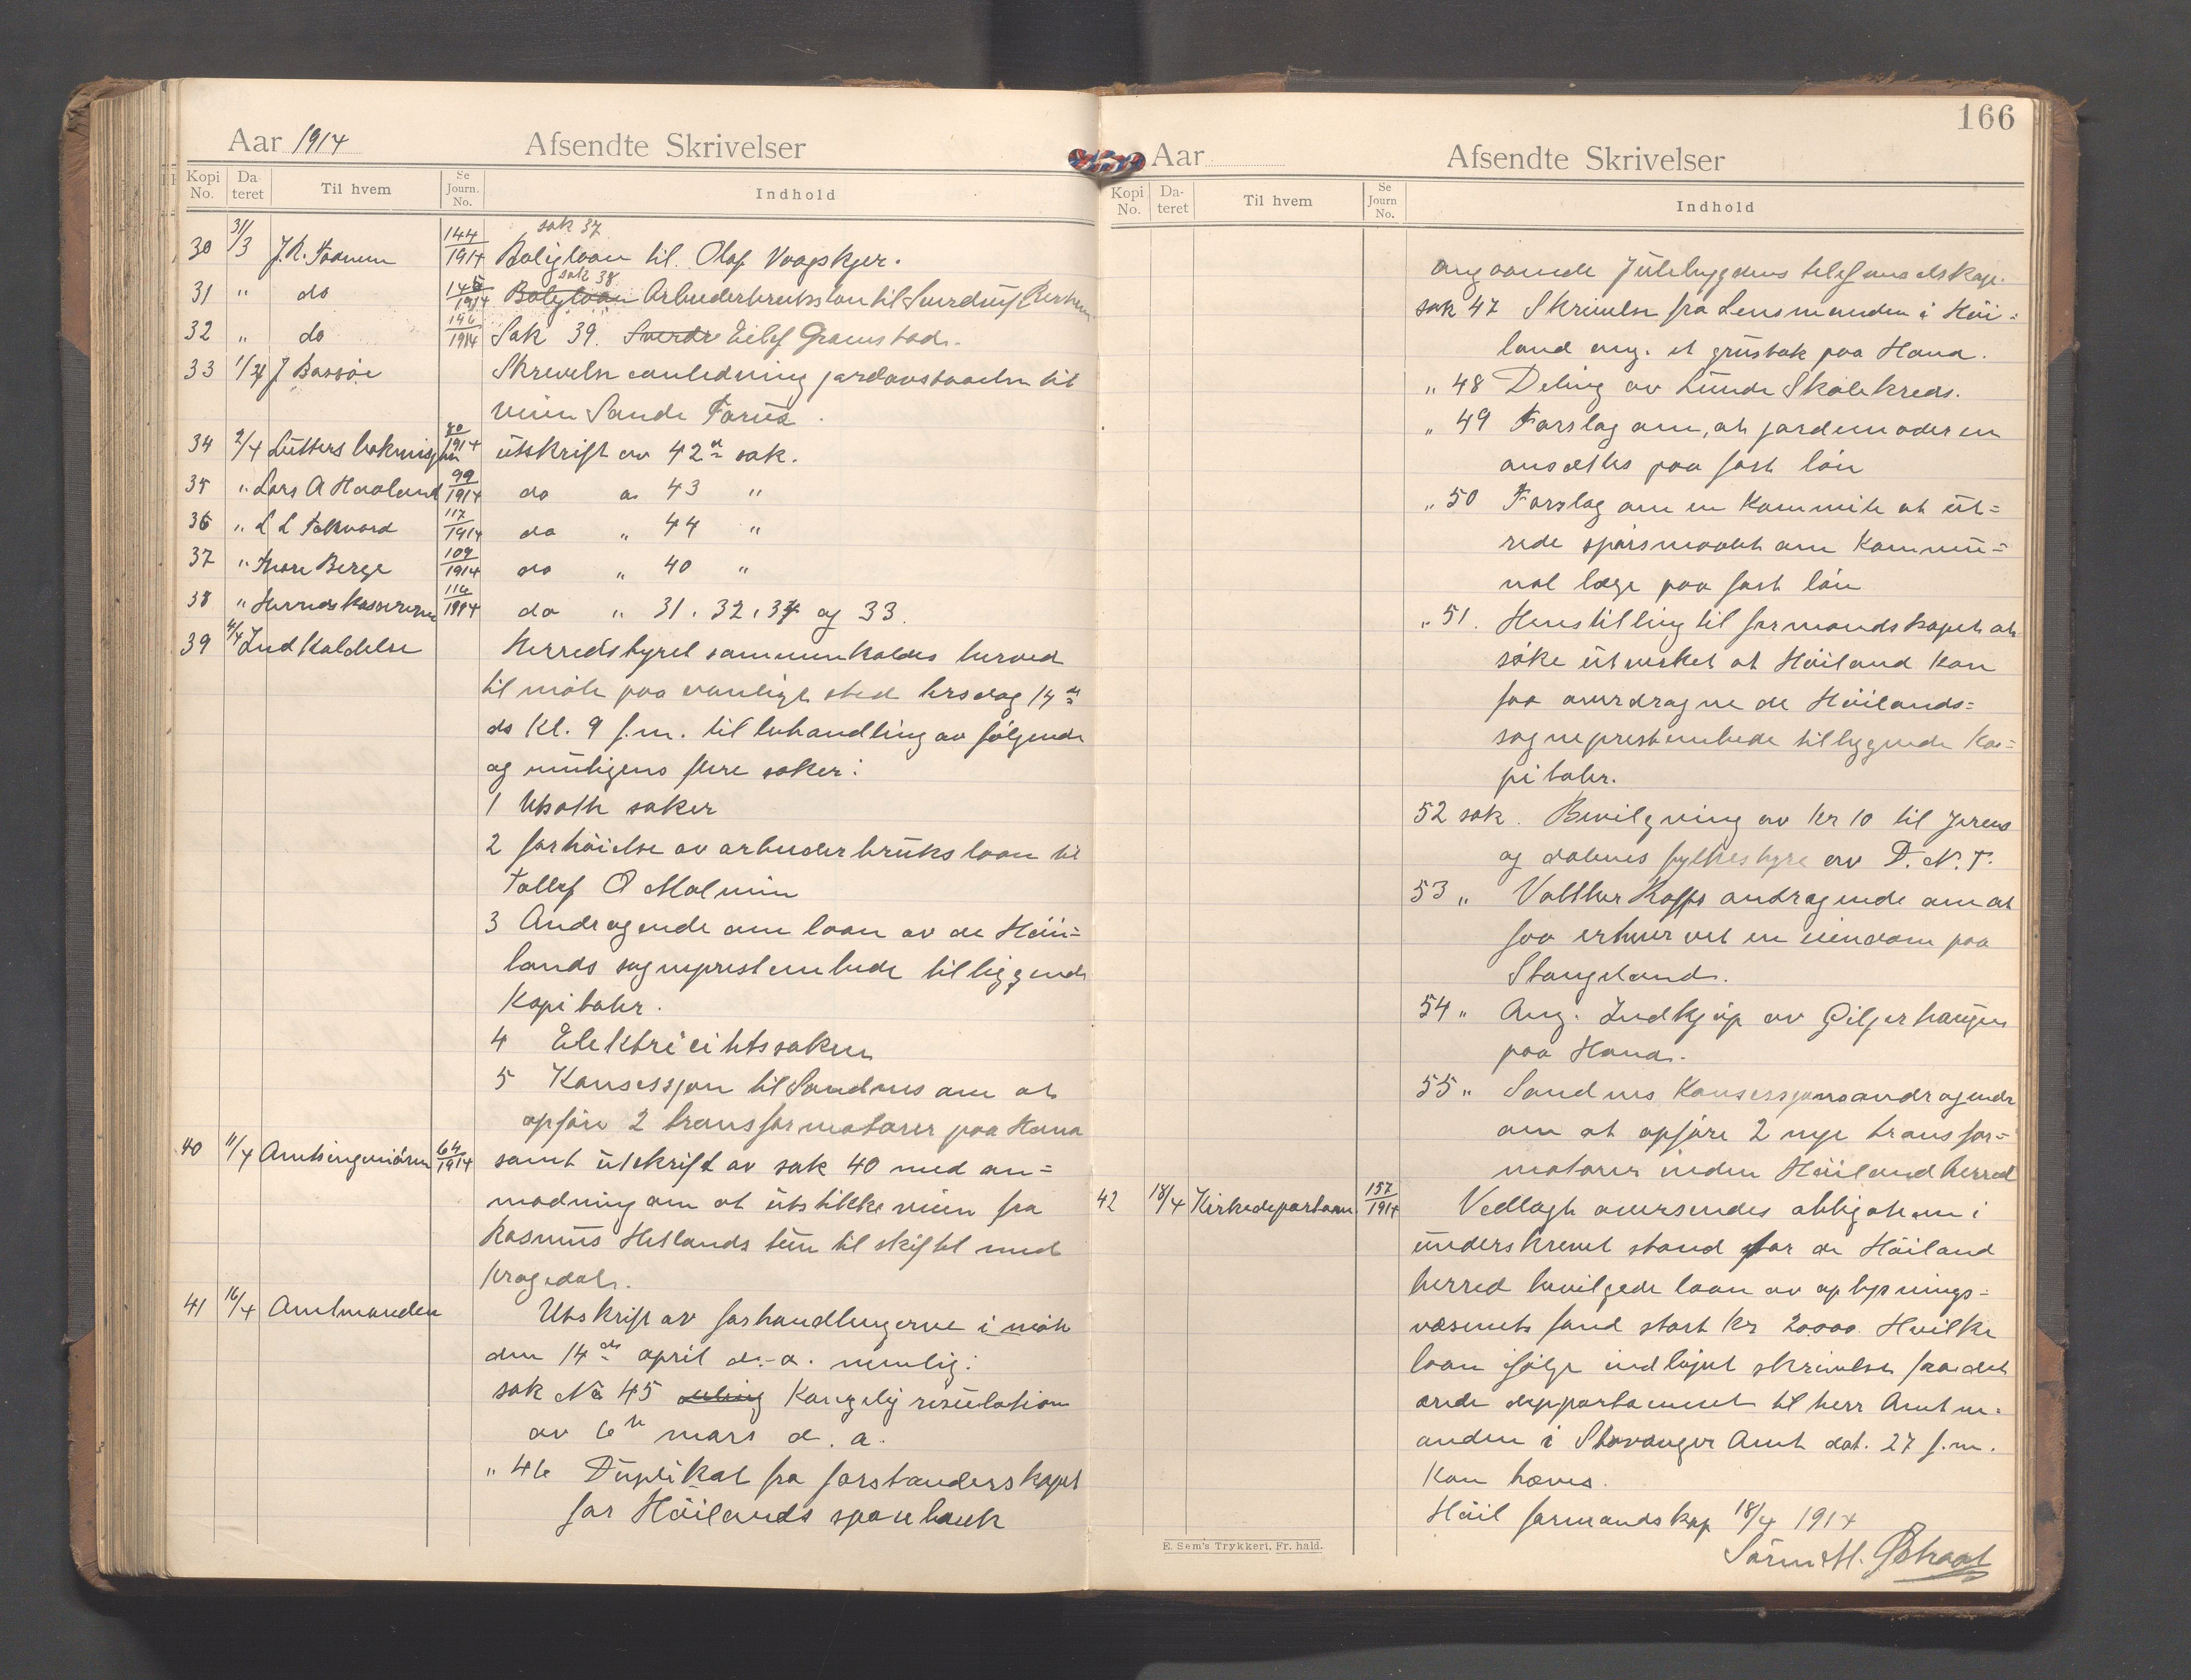 Aar 1914 Afsendte Skrivelser
Kopi No. Dateret Til hvem Se Journ. No. Indhold
sak 37
30 31/3 J. R. 144/1914 Boligloan til Olaf Vaagskjer.
sak 38
31 " do 145/1914 Boligloan Arbeiderbrukslon til
32 " do 146/1914 Sak 39. Sverdr Eilef Gramstad.
33 1/4 J Bassøe Skrivelse anledning jordavstaaelse til
veien Sande Forus.
34 2/4 80/1914 utskrift av 42de sak.
35 " Lars A Haaland 99/1914 do a 43 "
36 " L L Folkvord 117/1914 do " 44 "
37 " Thore Berge 109/1914 do " 40 "
38 " Herredskassereren 116/1914 do " 31. 32, 34 og 33.
39 4/4 Indkaldelse Herredstyret sammenkaldes herved
til møte paa vanligt sted tirsdag 14de
ds Kl. 9 f.m. til behandling av følgende
og muligens flere saker:
1 Utsatte saker
2 forhøielse av arbeiderbruksloan til
Tollef O Malmin
3 Andragende om loan av de Höi=
lands sogneprestembede tilliggende
Kapitaler.
4 Elektricitetssaken
5 Konsessjon til Sandnes om at
opføre 2 transformatorer paa Hana
40 11/4 Amtsingeniøren 64/1914 samt utskrift av sak 40 med an=
modning om at utstikke veien fra
Rasmus Hetlands tun til skiftet med
Kragedal.
41 16/4 Amtmanden Utskrift av forhandlingerne i møte
den 14de april d.a. nemlig:
sak No 45 deling Kongelig resulotion
av 6te mars d. a.
" 46 Duplikat fra forstanderskapet
for Höilands sparebank
166
Aar Afsendte Skrivelser
Kopi No. Dateret Til hvem Se Journ No. Indhold
angaaende Julebygdens telefonselskap.
sak 47 Skrivelse fra Lensmanden i Höi=
land ang. et grustak paa Hana.
" 48 Deling av Lunde Skolekreds.
" 49 Forslag om, at jordemoderen
ansættes paa fast løn
" 50 Forslag om en Kommite at ut=
rede spørsmaalet om Kommu=
nal læge paa fast løn
" 51. Henstilling til formandskapet at
søke utvirket at Höiland kan
faa overdragne de Höilands=
sogneprestembede tilliggende Ka=
pitaler.
52 sak. Bevilgning av Kr 10 til Jæren
og dalenes fylkestyre av D. N. T.
53 " Valther Kopps andragende om at
faa erhvervet en eiendom paa
Stangeland.
54 " Ang. Indkjøp av Giljerhaugen
paa Hana.
55 " Sandnes Konsessjonsandragende
om at opføre 2 nye transfor=
matorer inden Höiland herred
42 18/4 Kirkedepartem. 157/1914 Vedlagt oversendes obligationen i
underskrevet stand for de Höiland
herred bevilgede loan av oplysnings=
væsenets fond stort Kr 20000. Hvilke
loan ifølge indløpet skrivelse fra det
ærede deppartement til herr Amtm=
anden i Stavanger Amt dat. 27 f.m.
Kan hæves.
Höil formandskap 18/4 1914
Sören M. Østraat
E. Sem's Trykkeri, Fr. hald.